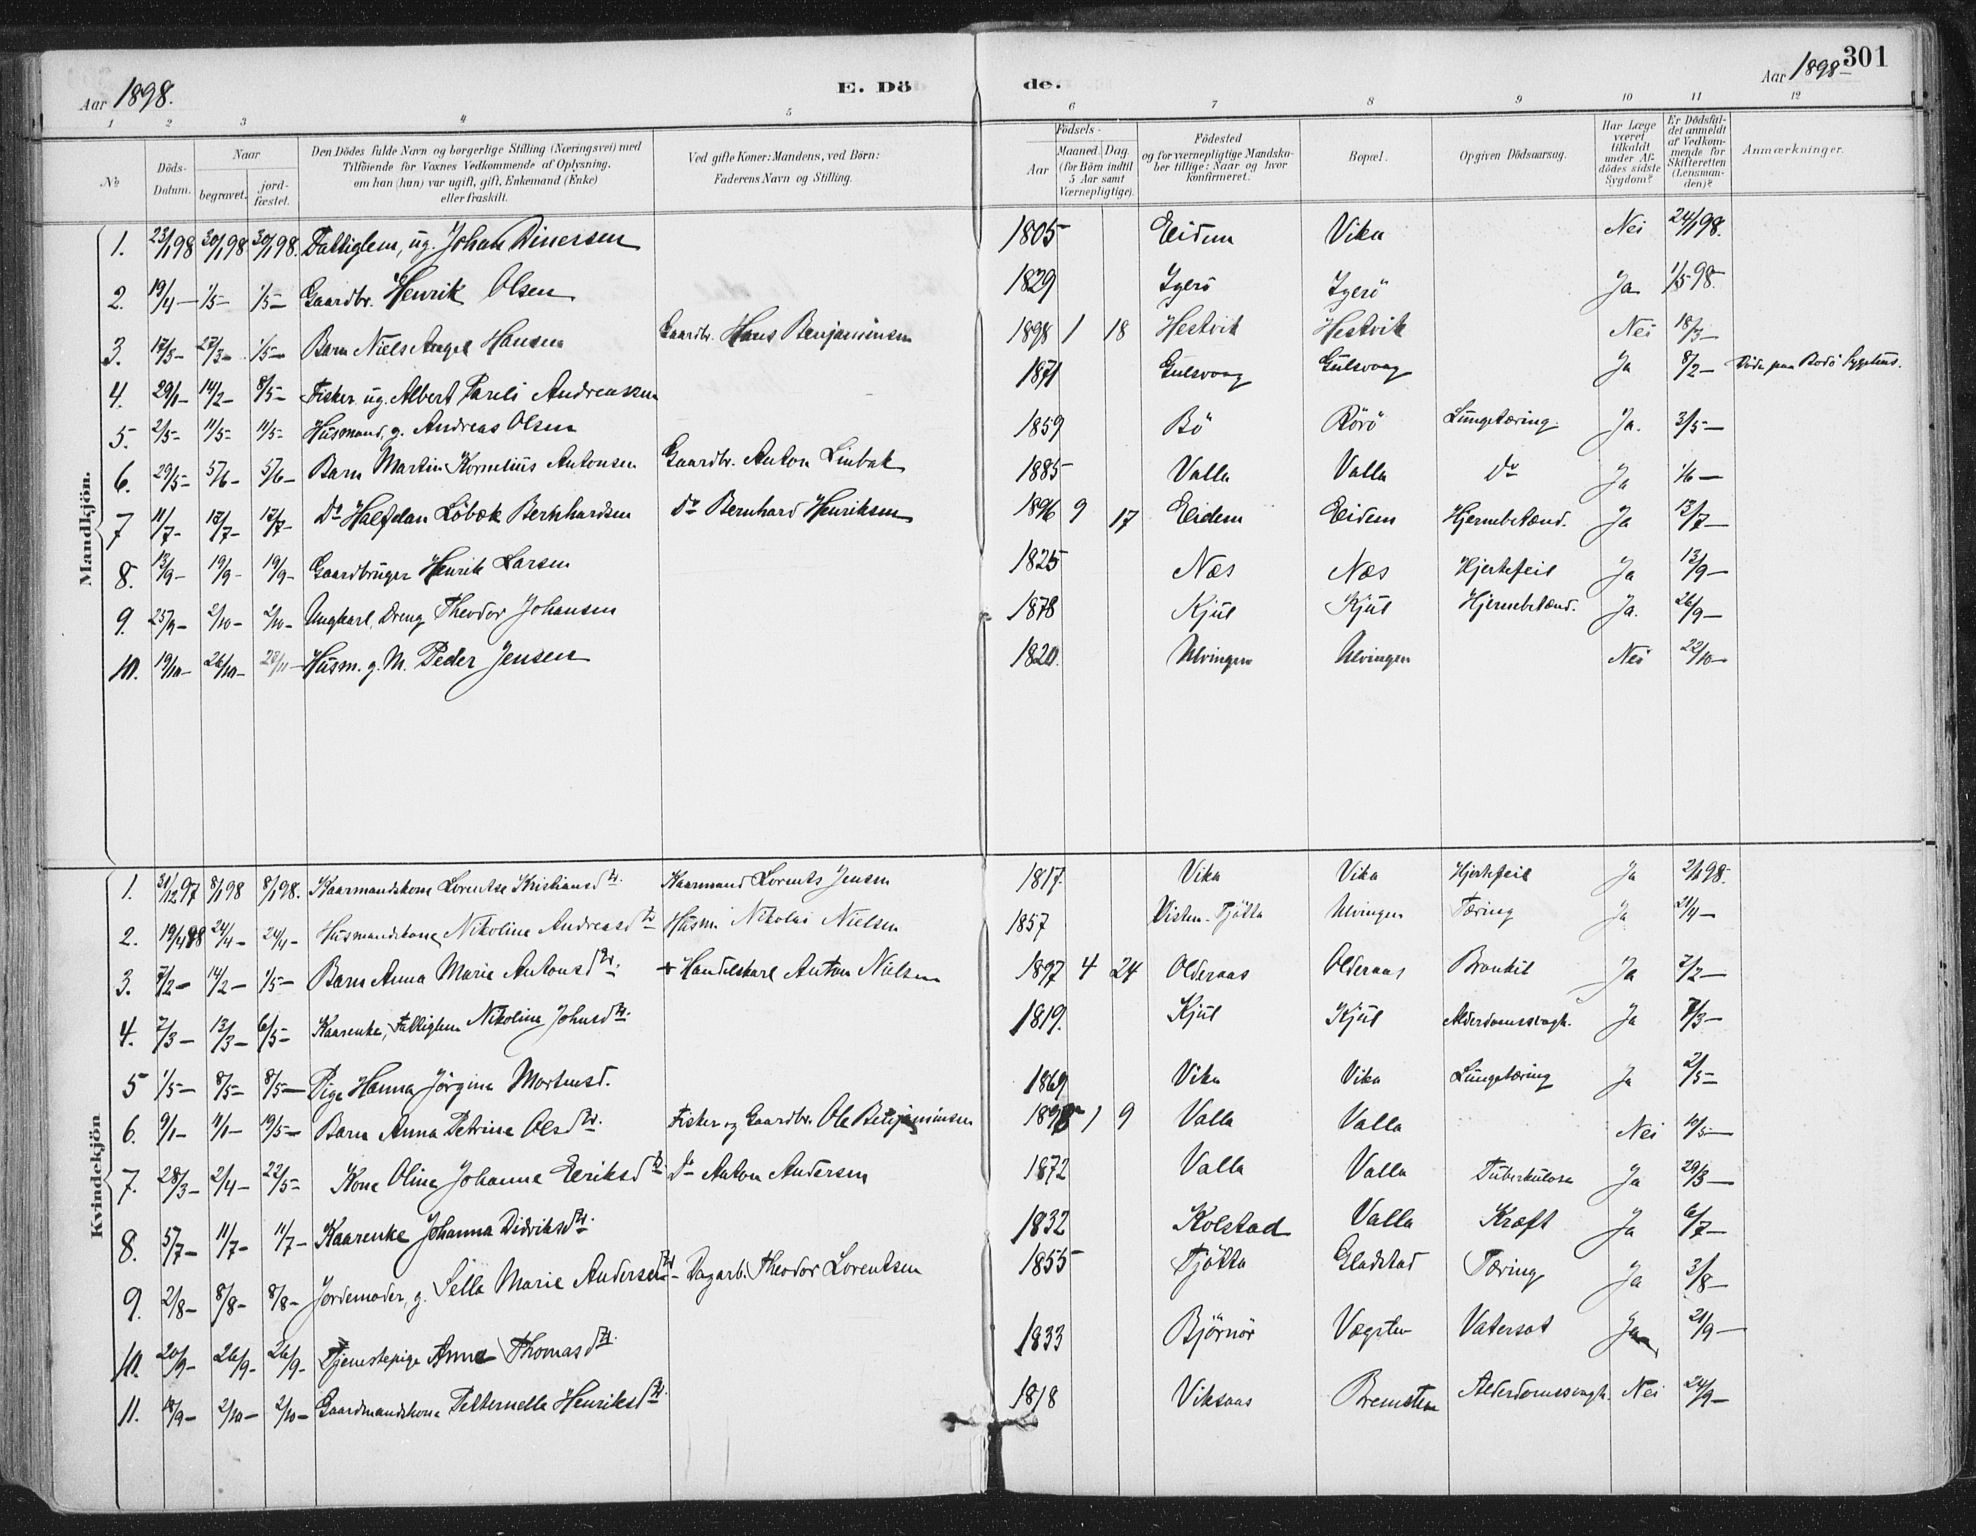 Aar 1898. E. Döde. Aar 1898 301
1 2 3 4 5 6 7 8 9 10 11 12
No Döds-Datum. Naar begravet. jord-fæstet. Den Dödes fulde Navn og borgerlige Stilling (Næringsvei) med Tilföiende for Voxnes Vedkommende af Oplysning, om han (hun) var ugift, gift, Enkemand (Enke) eller fraskilt. Ved gifte Koner: Mandens, ved Börn: Faderens Navn og Stilling. Födsels- Aar Maaned. Dag. (for Börn indtil 5 Aar samt Værnepligtige). Födested og for værnepligtige Mandskaber tillige: Naar og hvor konfirmeret. Bopæl. Opgiven Dödsaarsag. Har Læge været tilkaldt under Afdödes sidste Sygdom? Er Dödsfaldet anmeldt af Vedkommende for Skifteretten (Lensmanden)? Anmærkninger.
Mandkjön.
1. 23/1 98 30/1 98 30/1 98. Fattiglem, ug. Johan Dinessen 1805 Eidem Vika Nei 24/1 98.
2. 19/4 – 1/5 – 1/5 – Gaardbr. Henrik Olsen 1829 Igerö Igerö Ja 1/5 98.
3. 17/3 – 27/3 – 1/5 – Barn Niels Angel Hansen Gaardbr. Hans Benjaminsen 1898 1 18 Hestvik Hestvik Nei 18/3 –
4. 29/1 – 14/2 – 8/5 – Fisker ug. Albert Pareli Andreassen 1871 Gulsvaag Gulsvaag Ja 8/2 – Döde paa Bodö Sygehus.
5. 2/5 – 11/5 – 11/5 – Husmand, g. Andreas Olsen 1859 Bö Rörö Lungetæring. Ja. 3/5 –
6. 29/5 – 5/6 – 5/6 – Barn Martin Kornelius Antonsen Gaardbr. Anton Linbak 1885 Valla Valla Do Ja 1/6 –
7 11/7 – 17/7 – 17/7 – Do Halfdan Löbæk Bernhardsen Do Bernhard Henriksen 1896 9 17 Eidem Eidem Hjernebetænd. Ja 13/7 –
8. 13/9 – 19/9 – 19/9 – Gaardbruger Henrik Larsen 1825 Næs Næs Hjertefeil Ja 13/9 –
9. 25/9 – 2/10 – 2/10 – Ungkarl, Dreng Theodor Johansen 1878 Kjul Kjul Hjernebetænd. Ja. 26/9 –
10. 19/10 – 26/10 – Husm. g. M. Peder Jensen 1820. Ulvingen Ulvingen Nei 22/10 –
Kvindekjön
1. 31/12 97 8/1 98 8/1 98. Kaarmandskone Lorentse Kristiansdtr. Kaarmand Lorents Jensen 1817. Vika Vika Hjertefeil Ja 2/1 98.
2. 19/4 98 24/4 – 24/4 – Husmandskone Nikoline Andreasdtr Husm. Nikolai Nielsen 1857 Visten-Tjötta Ulvingen Tæring Ja 21/4 –
3. 7/2 – 14/2 – 1/5 – Barn Anna Marie Antonsdtr. + Handelskarl Anton Nielsen 1897 4 24 Olderaas Olderaas Bronkit Ja 7/2 –
4. 7/3 – 13/3 – 6/5 – Kaarenke, Fattiglem Nikoline Johnsdtr. 1819. Kjul Kjul Alderdomssvagh. Ja 7/3 –
5 1/5 – 8/5 – 8/5 – Pige Hanna Jörgine Mortensd. 1869 Vika Vika Lungetæring Ja 2/5 –
6. 9/1 – 11/1 – 19/5 – Barn Anna Petrine Olsdtr. Fisker og Gaardbr. Ole Benjaminsen 1898 1 9 Valla Valla Nei 10/5 –
7. 28/3 – 2/4 – 22/5 – Kone Oline Johanne Eeriksdtr Do Anton Andersen 1872 Valla Valla Tuberkulose Ja 29/3 –
8. 5/7 – 11/7 – 11/7 – Kaarenke Johanna Didriksdtr. 1832 Kolstad Valla Kræft Ja 6/7 –
9. 2/8 – 8/8 – 8/8 – Jordemoder, g. Sella Marie Andersendtr – Dagarb. Theodor Lorentsen 1855 Tjötta Gladstad Tæring Ja 3/8 –
10. 20/9 – 26/9 – 26/9 – Tjenstepige Anna Thomasdtr. 1833 Björnör Vægsten Vatersot Ja 21/9 –
11. 18/9 – 2/10 – 2/10 – Gaardmandskone Petternelle Henriksdtr 1818 Viksaas Bremsten Alderdomssvagh. Nei 24/9 –